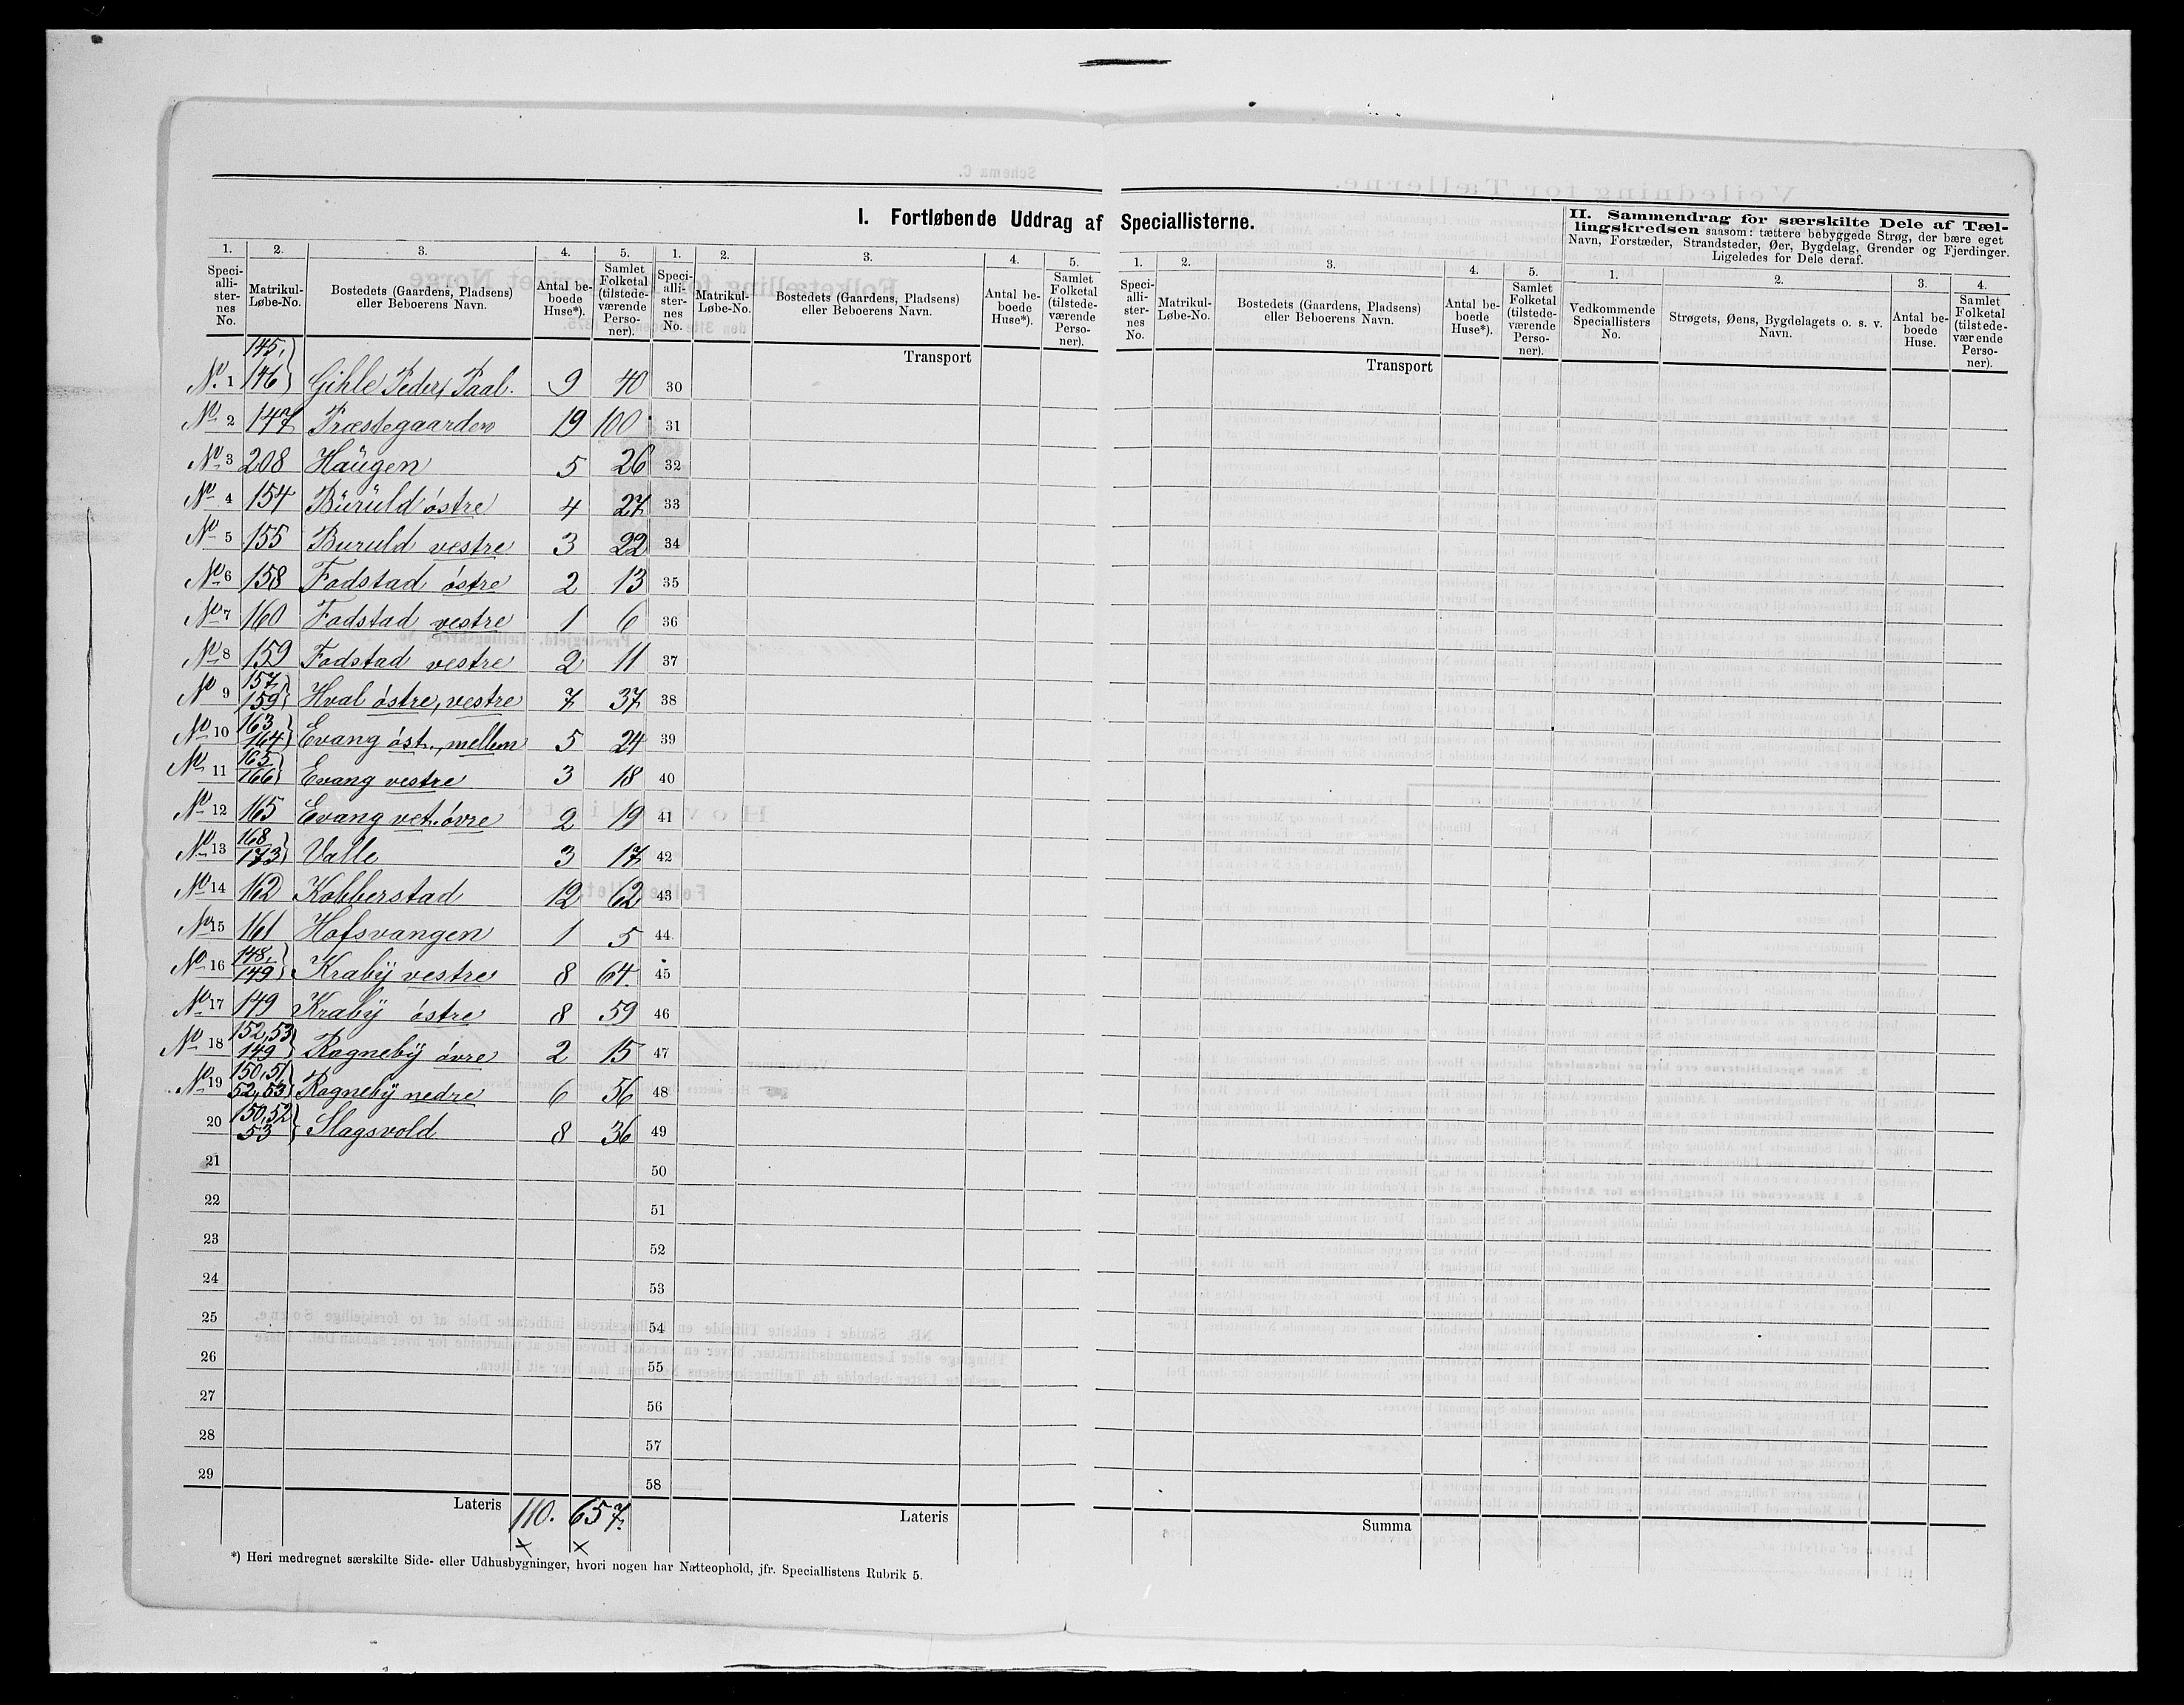 I. Fortløbende Uddrag af Speciallisterne.
II. Sammendrag for særskilte Dele af Tæl-
lingskredsen saasom: tættere bebyggede Strøg, der bære eget
Navn, Forstæder, Strandsteder, Øer, Bygdelag, Grender og Fjerdinger.
Ligeledes for Dele deraf.
1. 2. 3. 4. 5. 1. 2. 3. 4. 5. 1. 2. 3. 4. 5. 1. 2. 3. 4.
Speci-alli-ster-nes No. Matrikul-Løbe-No. Bostedets (Gaardens, Pladsens) eller Beboerens Navn. Antal be-boede Huse*). Samlet Folketal (tilstede-værende Perso-ner).
Speci-alli-ster-nes No. Matrikul-Løbe-No. Bostedets (Gaardens, Pladsens) eller Beboerens Navn. Antal be-boede Huse*). Samlet Folketal (tilstede-værende Perso-ner).
Speci-alli-ster-nes No. Matrikul-Løbe-No. Bostedets (Gaardens, Pladsens) eller Beboerens Navn. Antal be-boede Huse*). Samlet Folketal (tilstede-værende Perso-ner).
Vedkommende Speciallisters No. Strøgets, Øens, Bygdelagets o. s. v. Navn. Antal be-boede Huse. Samlet Folketal (tilstede-værende Perso-ner).
Transport Transport
No. 1 145, 146 Gihle Peder, Paal. 9 40 30
No 2 147 Præstegaarden 19 100 31
No 3 208 Haugen 5 26 32
No 4 154 Buruld østre 4 27 33
No 5 155 Buruld vestre 3 22 34
No 6 158 Fodstad østre 2 13 35
No 7 160 Fodstad vestre 1 6 36
No 8 159 Fodstad vestre 2 11 37
No 9 157, 159 Hval østre, vestre 7 37 38
No 10 163 164 Evang øst., mellem 5 24 39
No 11 165 166 Evang vestre 3 18 40
No 12 165 Evang vet. øvre 2 19 41
No 13 168 173 Valle 3 17 42
No 14 162 Kobberstad 12 62 43
No 15 161 Hofsvangen 1 5 44
No 16 148, 149 Kraby vestre 8 64. 45
No 17 149 Kraby østre 8 59 46
No 18 152,53 149 Rogneby øvre 2 15 47
No 19 150,51 52,53 Rogneby nedre 6 56 48
20 150,52 53 Slagsvold 8 36 49
21 50
22 51
23 52
24 53
25 54
26 55
27 56
28 57
29 58
Lateris 110. 657. Lateris Summa
*) Heri medregnet særskilte Side- eller Udhusbygninger, hvori nogen har Natteophold, jfr. Speciallistens Rubrik 5.